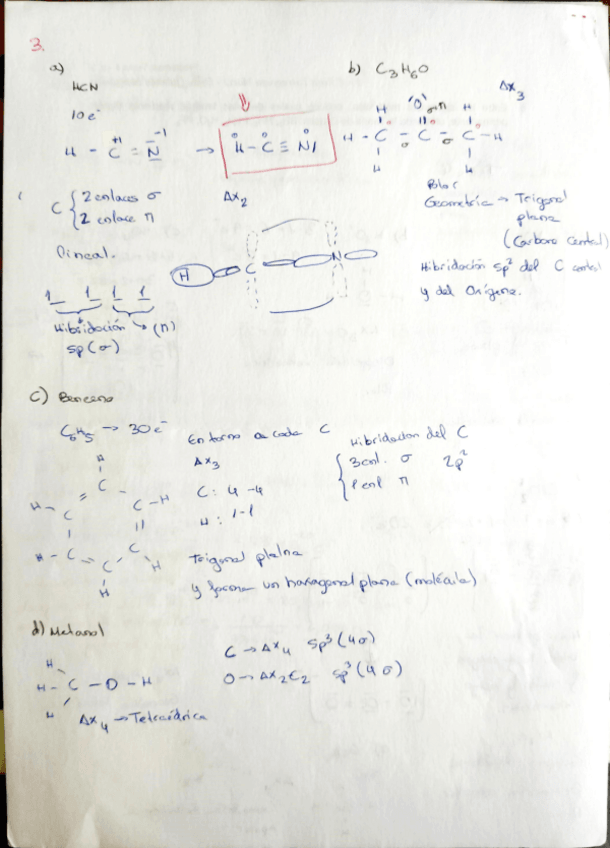 3.
a)
HCN
10 e⁻
H - C = N
→ H - C ≡ N
+1 -1
C { 2 enlaces σ
2 enlace π
AX₂
Lineal.
H C N
1 1 1 1
Hibridación → (π)
sp (σ)
b) C₃H₆O
AX₃
H O σπ H
H - C - C - C - H
σ σ
H H
Polar
Geometría → Trigonal
plana
(Carbono Central)
Hibridación sp² del C central
y del Oxígeno.
c) Benceno
C₆H₅ → 30 e⁻
H
C
H C C - H
H - C C C H
H
Entorno de cada C
AX₃
C: 4 - 4
H: 1 - 1
Hibridacion del C
{ 3 enl. σ 2p²
1 enl π
Trigonal plana
y forma un hexagonal plana (molécula)
d) Metanol
H
H - C - O - H
H
AX₄ → Tetraédrica
C → AX₄ sp³ (4σ)
O → AX₂E₂ sp³ (4σ)